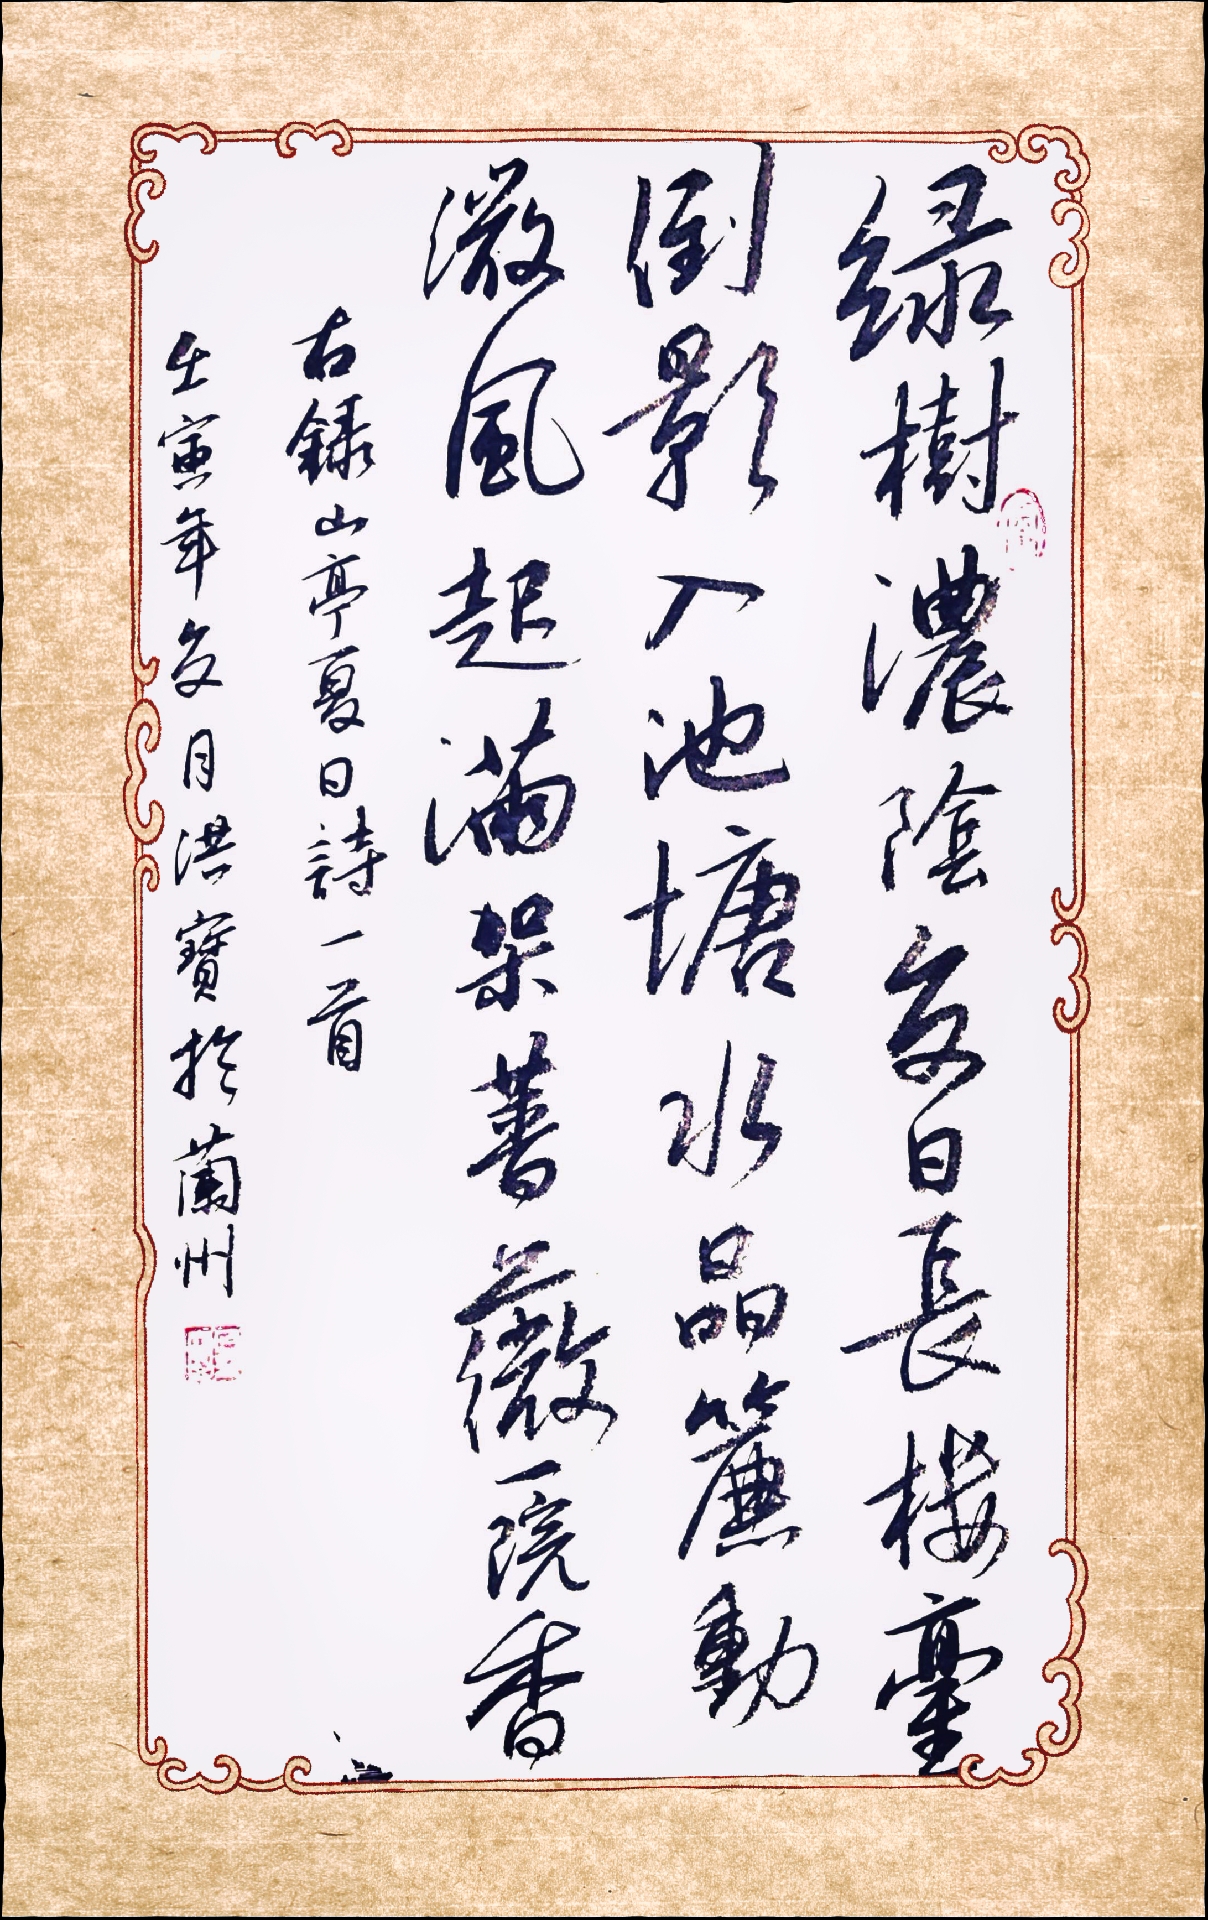 緑樹濃陰夏日長楼臺
倒影入池塘水晶簾動
微風起滿架薔薇一院香
右録山亭夏日詩一首
壬寅年夏月洪寳於蘭州